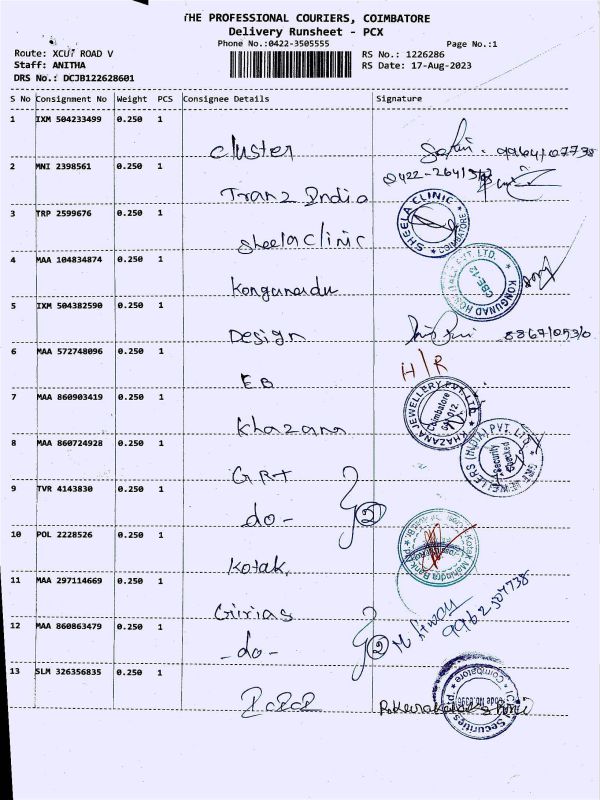 THE PROFESSIONAL COURIERS, COIMBATORE
Delivery Runsheet - PCX
Phone No.:0422-3505555
Page No.:1
Route: XCUT ROAD V
RS No.: 1226286
Staff: ANITHA
RS Date: 17-Aug-2023
DRS No.: DCJB122628601
S No Consignment No Weight PCS Consignee Details Signature
1 IXM 504233499 0.250 1
Cluster
2 MNI 2398561 0.250 1
Tranz India
3 TRP 2599676 0.250 1
Sheela Clinic
SHEELA CLINIC COIMBATORE
4 MAA 104834874 0.250 1
Kongunadu
5 IXM 504382590 0.250 1
Design
6 MAA 572748096 0.250 1
H/R
EB
7 MAA 860903419 0.250 1
Khazana
KHAZANA JEWELLERY PVT. LTD. Coimbatore
8 MAA 860724928 0.250 1
GRT
GRT JEWELLERS (INDIA) PVT. LTD. Security Checked
9 TVR 4143830 0.250 1
-do-
2
10 POL 2228526 0.250 1
Kotak
Kotak Mahindra Bank
11 MAA 297114669 0.250 1
Girias
9962307738
12 MAA 860863479 0.250 1
-do-
2
13 SLM 326356835 0.250 1
ICICI Securities Coimbatore